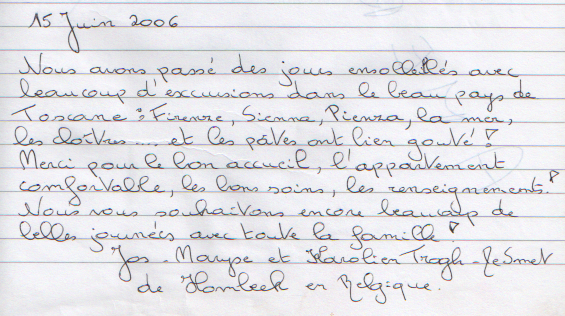 15 Juin 2006
Nous avons passé des jours ensoleillés avec
beaucoup d'excursions dans le beau pays de
Toscane : Firenze, Sienna, Pienza, la mer,
les cloîtres .... et les pâtes ont bien gouté !
Merci pour le bon accueil, l'appartement
comfortable, les bons soins, les renseignements !
Nous vous souhaitons encore beaucoup de
belles journées avec toute la famille !
Jos - Maryse et Karolien Trogh - DeSmet
de Hombeek en Belgique.